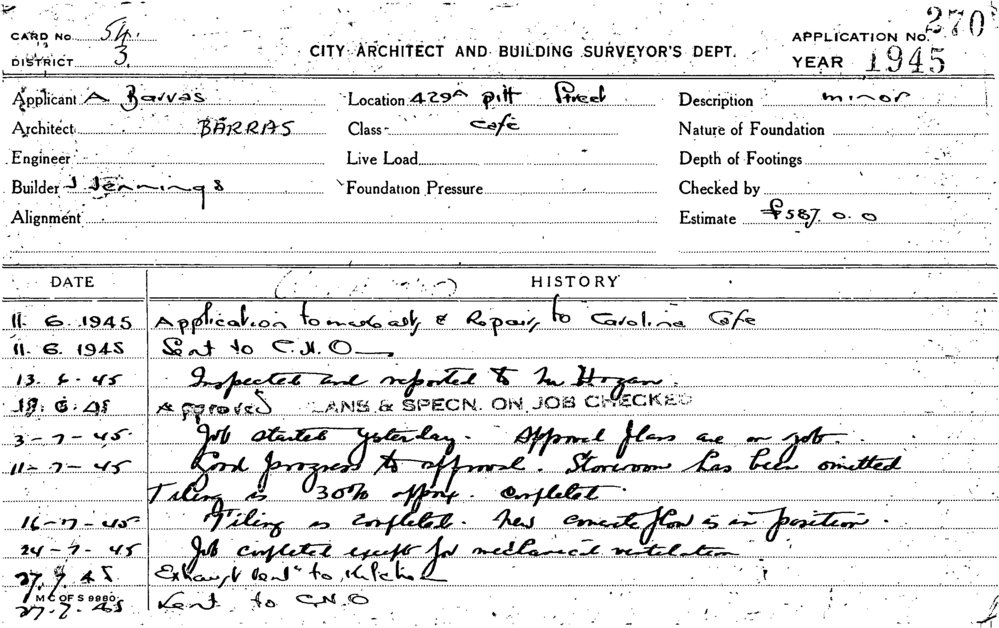 CARD No 54.
DISTRICT 3.
CITY ARCHITECT AND BUILDING SURVEYOR'S DEPT.
APPLICATION No. 270
YEAR 1945
Applicant A Barras
Location 429A Pitt Street
Description minor
Architect BARRAS
Class Cafe
Nature of Foundation
Engineer
Live Load
Depth of Footings
Builder J Jennings
Foundation Pressure
Checked by
Alignment
Estimate £587.0.0
DATE HISTORY
11. 6. 1945 Application to & Repairs to Carolina Cafe
11. 6. 1945 Sent to C.H.O
13. 6. 45 Inspected and reported to Mr Hogan.
18. 6. 45 Approved LANS & SPECN. ON JOB CHECKED
3-7-45 Job started yesterday. Approval plans are on job.
11-7-45 Good progress to approval. Storeroom has been omitted
Tiling is 30% approx. completed.
16-7-45 Tiling is completed. New concrete floor is in position.
24-7-45 Job completed except for mechanical ventilation
27.7.45 Exhaust vent to Kitchen
M C OF S 9980
27.7.45 to C.H.O